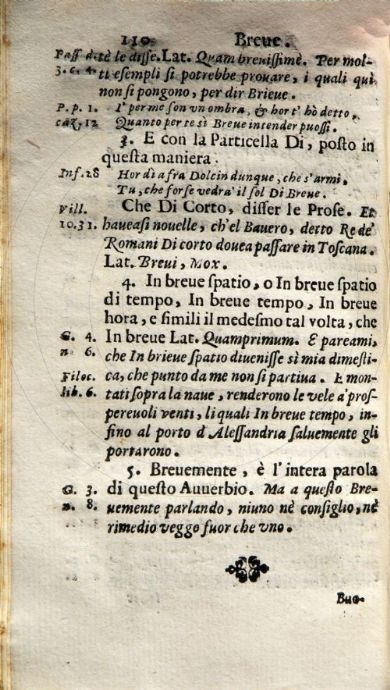 110 Breue.
Pass. dità le disse. Lat. Quam breuissimè. Per mol-
3. c. 4. ti esempli si potrebbe prouare, i quali quì
non si pongono, per dir Brieue.
P. p. 1. I' per me son vn ombra, & hor t' hò detto,
caz. 12 Quanto per te sì Breue intender puossi.
3. E con la Particella Di, posto in
questa maniera.
Inf. 28 Hor dì a fra Dolcin dunque, che s'armi,
Tu, che forse vedra' il sol Di Breue.
Vill. Che Di Corto, disser le Prose. Et
10.31. haueasi nouelle, ch'el Bauero, detto Re de'
Romani Di corto douea passare in Toscana.
Lat. Breui, Mox.
4. In breue spatio, o In breue spatio
di tempo, In breue tempo, In breue
hora, e simili il medesmo tal volta, che
G. 4. In breue Lat. Quamprimum. E pareami,
n. 6. che In brieue spatio diuenisse sì mia dimesti-
Filoc. ca, che punto da me non si partiua. E mon-
lib. 6. tati sopra la naue, renderono le vele a' pros-
pereuoli venti, li quali In breue tempo, in-
fino al porto d'Alessandria saluemente gli
portarono.
5. Breuemente, è l'intera parola
G. 3. di questo Auuerbio. Ma a questo Bre-
n. 8. uemente parlando, niuno nè consiglio, nè
rimedio veggo fuor che vno.
Buo-